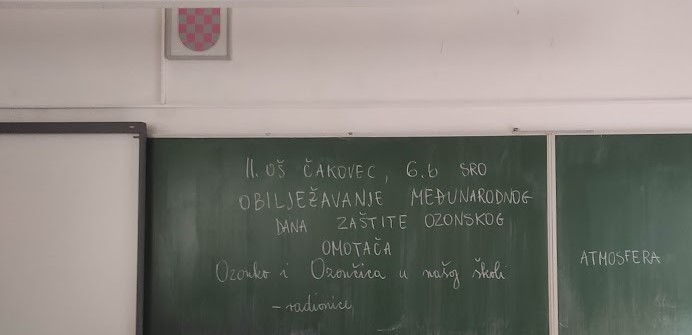 II. OŠ ČAKOVEC, 6.b SRO
OBILJEŽAVANJE MEĐUNARODNOG
DANA ZAŠTITE OZONSKOG
OMOTAČA
Ozonko i Ozončica u našoj školi
- radionice
ATMOSFERA